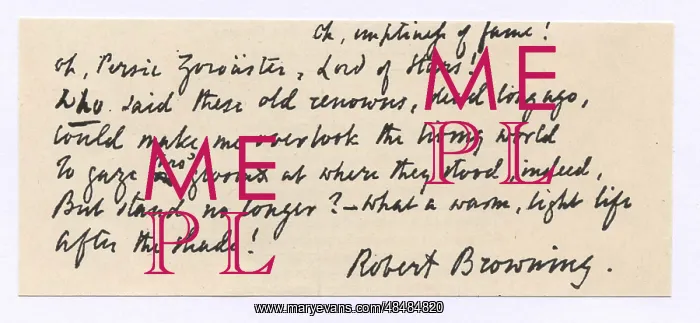 Oh, emptiness of fame!
oh, Persic Zoroäster, Lord of Stars!
Who said these old renowns, dead long ago,
Could make me overlook the living world
To gaze thro' gloom at where they stood, indeed,
But stand no longer? – What a warm, light life
After the shade!
Robert Browning.
ME
PL
ME
PL
www.maryevans.com/48484820